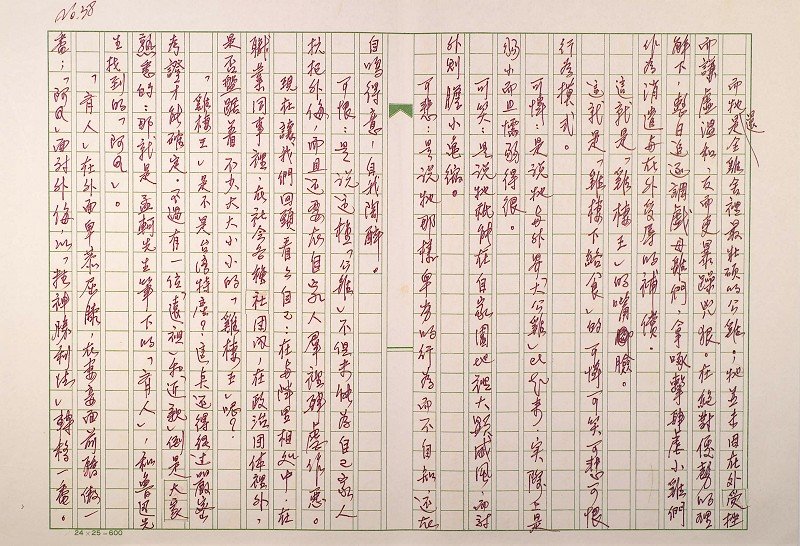 No.38
而牠還是全雞舍裡最壯碩的公雞。牠並未因在外受挫
而謙虛溫和，反而更暴躁兇狠。在絕對優勢的體
解下，整日追逐調戲母雞們，拿啄擊肆虐小雞們
作為消遣與在外受辱的補償。
這就是「雞棲王」的嘴臉。
這就是「雞棲下給食」的可憐可笑可悲可恨
行為模式。
可憐：是說牠與外界「大公雞」比起來，實際上是
弱小而且懦弱得很。
可笑：是說牠祇能在自家園地裡大顯威風，而對
外則膽小退縮。
可悲：是說牠那樣卑劣的行為而不自知，還在
自鳴得意，自我陶醉。
可恨：是說這樣「公雞」不但未能為自己家人
抗拒外侮，而且還要在自家人羣裡肆虐作惡。
現在讓我們回頭看看自己：在每陣置相處中，在
職業同事裡，在社會各種社團內，在政治團体裡外，
是否盤踞着不少大大小小的「雞棲王」呢？
「雞棲王」是不是台灣特產？這點還得經過嚴密
考證才能確定。不過有一位「遠祖」和近親，倒是大家
熟悉的：那就是孟軻先生筆下的「有人」，和魯迅先
生找到的「阿Q」。
「有人」在外面卑恭屈膝，在妻妾面前驕傲一
番；「阿Q」面對外侮，以「精神勝利法」轉移一番。
24×25=600